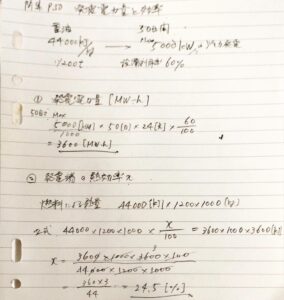 問題 P50 発電電力量と効率
重油 30日間
44000kJ/kg → Max 5000kW 汽力発電
1200t 設備利用率60%
① 発電電力量 [MW・h]
Max
5000/1000 [kW] × 30[日] × 24[h] × 60/100
= 3600 [MW・h]
② 発電端の熱効率 x
燃料 熱量 44000 [kJ] × 1200×1000 [kg]
公式 44000×1200×1000 × x/100 = 3600×1000×3600[kJ]
x = 3600×1000×3600×100 / 44,000×1200×1000
= 360×3/44 = 24.5 [%]